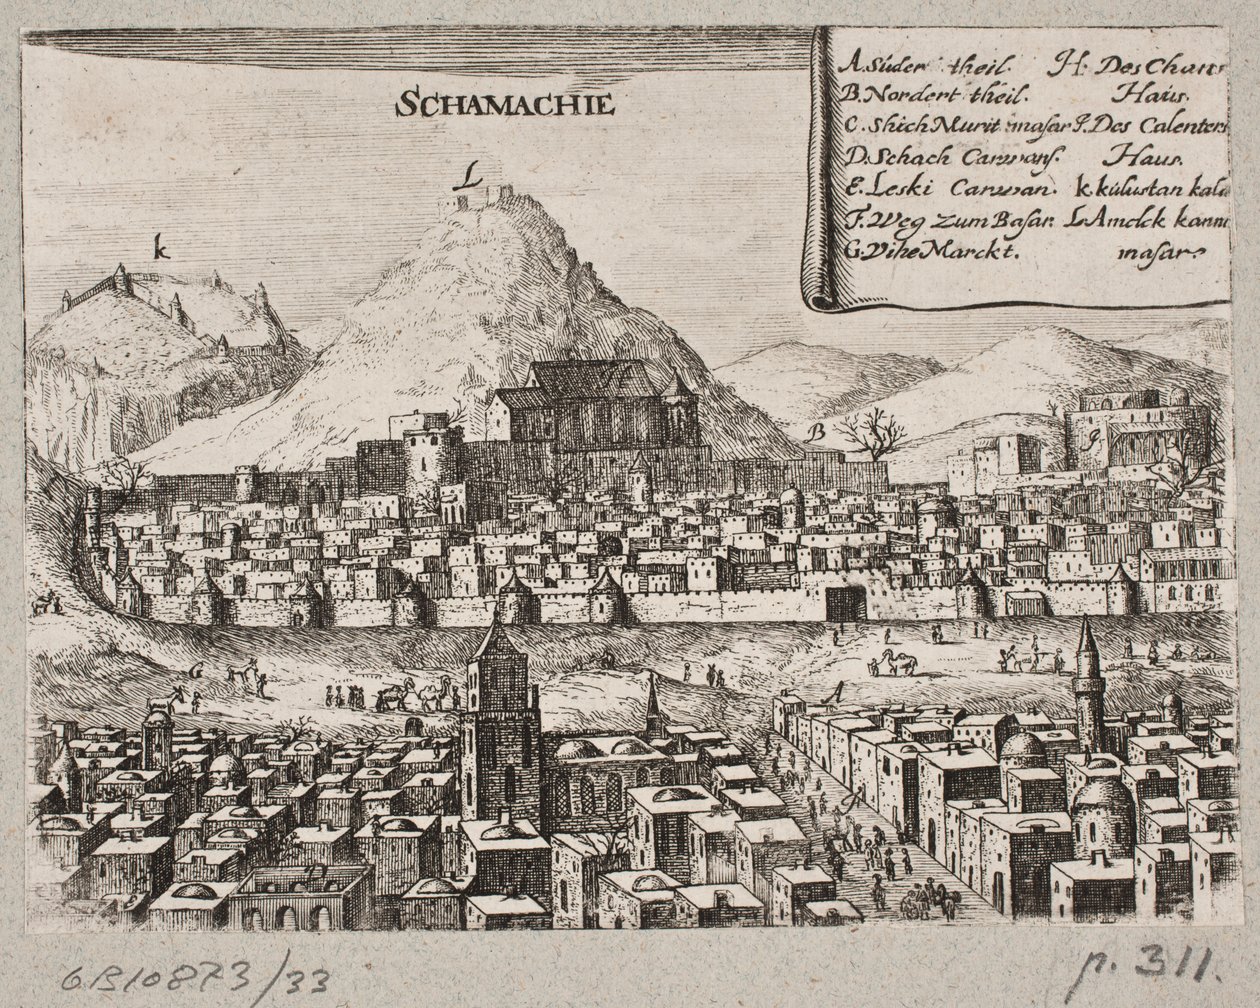 SCHAMACHIE
A. Súder theil. H. Des Chans
B. Nordert theil. Haús.
C. Shich Murit masar I. Des Calenters
D. Schach Carwans. Haus.
E. Leski Carwan. k. kúlustan kala
F. Weg zum Basar. L Amelek kanna
G. Vihe Marckt. masar
L
k
B
G
A
D
6B10873/33
p. 311.